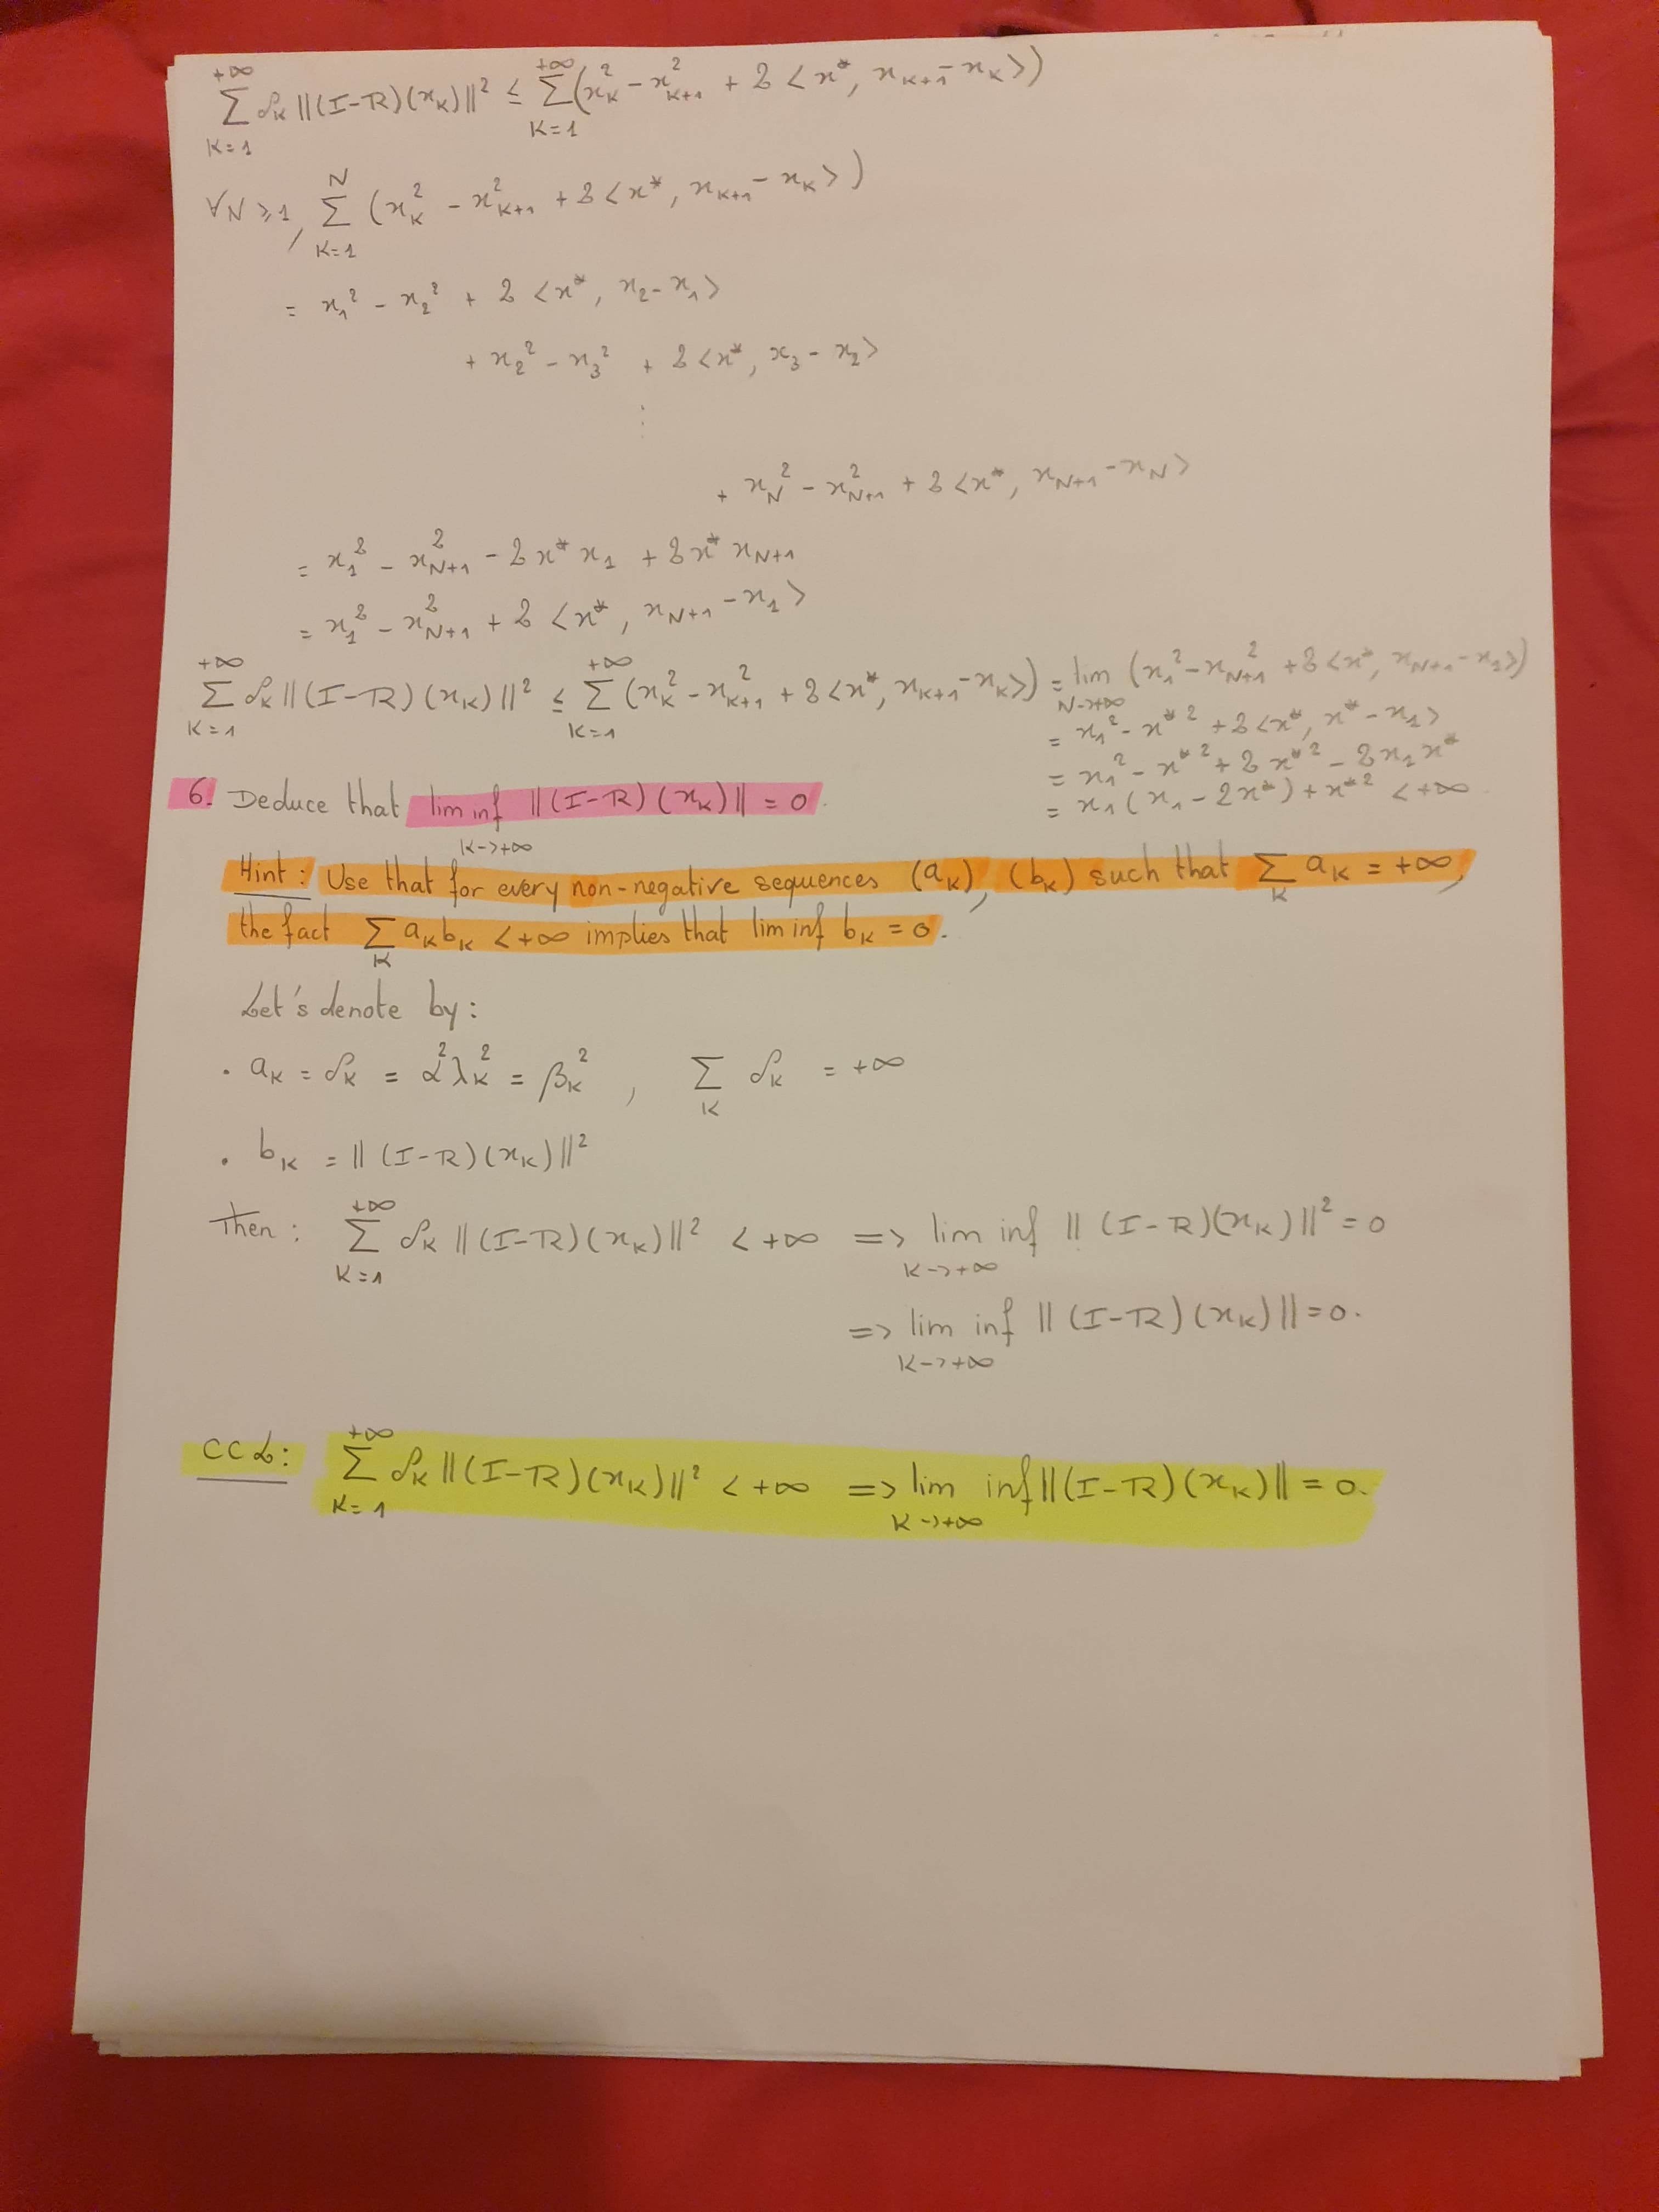 +∞ ∑ K=1 δK ||(I-R)(xK)||² ≤ +∞ ∑ K=1 (xK² - xK+1² + 2 <x*, xK+1 - xK>)
∀N ≥ 1, N ∑ K=1 (xK² - xK+1² + 2 <x*, xK+1 - xK>)
= x1² - x2² + 2 <x*, x2 - x1>
+ x2² - x3² + 2 <x*, x3 - x2>
⋮
+ xN² - xN+1² + 2 <x*, xN+1 - xN>
= x1² - xN+1² - 2x* x1 + 2x* xN+1
= x1² - xN+1² + 2 <x*, xN+1 - x1>
+∞ ∑ K=1 δK ||(I-R)(xK)||² ≤ +∞ ∑ K=1 (xK² - xK+1² + 2 <x*, xK+1 - xK>) = lim N->+∞ (x1² - xN+1² + 2 <x*, xN+1 - x1>)
= x1² - x*² + 2 <x*, x* - x1>
= x1² - x*² + 2 x*² - 2 x1 x*
= x1 (x1 - 2x*) + x*² < +∞
6. Deduce that lim inf K->+∞ ||(I-R)(xK)|| = 0.
Hint: Use that for every non-negative sequences (aK), (bK) such that ∑K aK = +∞,
the fact ∑K aK bK < +∞ implies that lim inf bK = 0.
Let's denote by:
• aK = δK = α² λK² = βK², ∑K δK = +∞
• bK = ||(I-R)(xK)||²
Then: +∞ ∑ K=1 δK ||(I-R)(xK)||² < +∞ => lim inf K->+∞ ||(I-R)(xK)||² = 0
=> lim inf K->+∞ ||(I-R)(xK)|| = 0.
CCL: +∞ ∑ K=1 δK ||(I-R)(xK)||² < +∞ => lim inf K->+∞ ||(I-R)(xK)|| = 0.